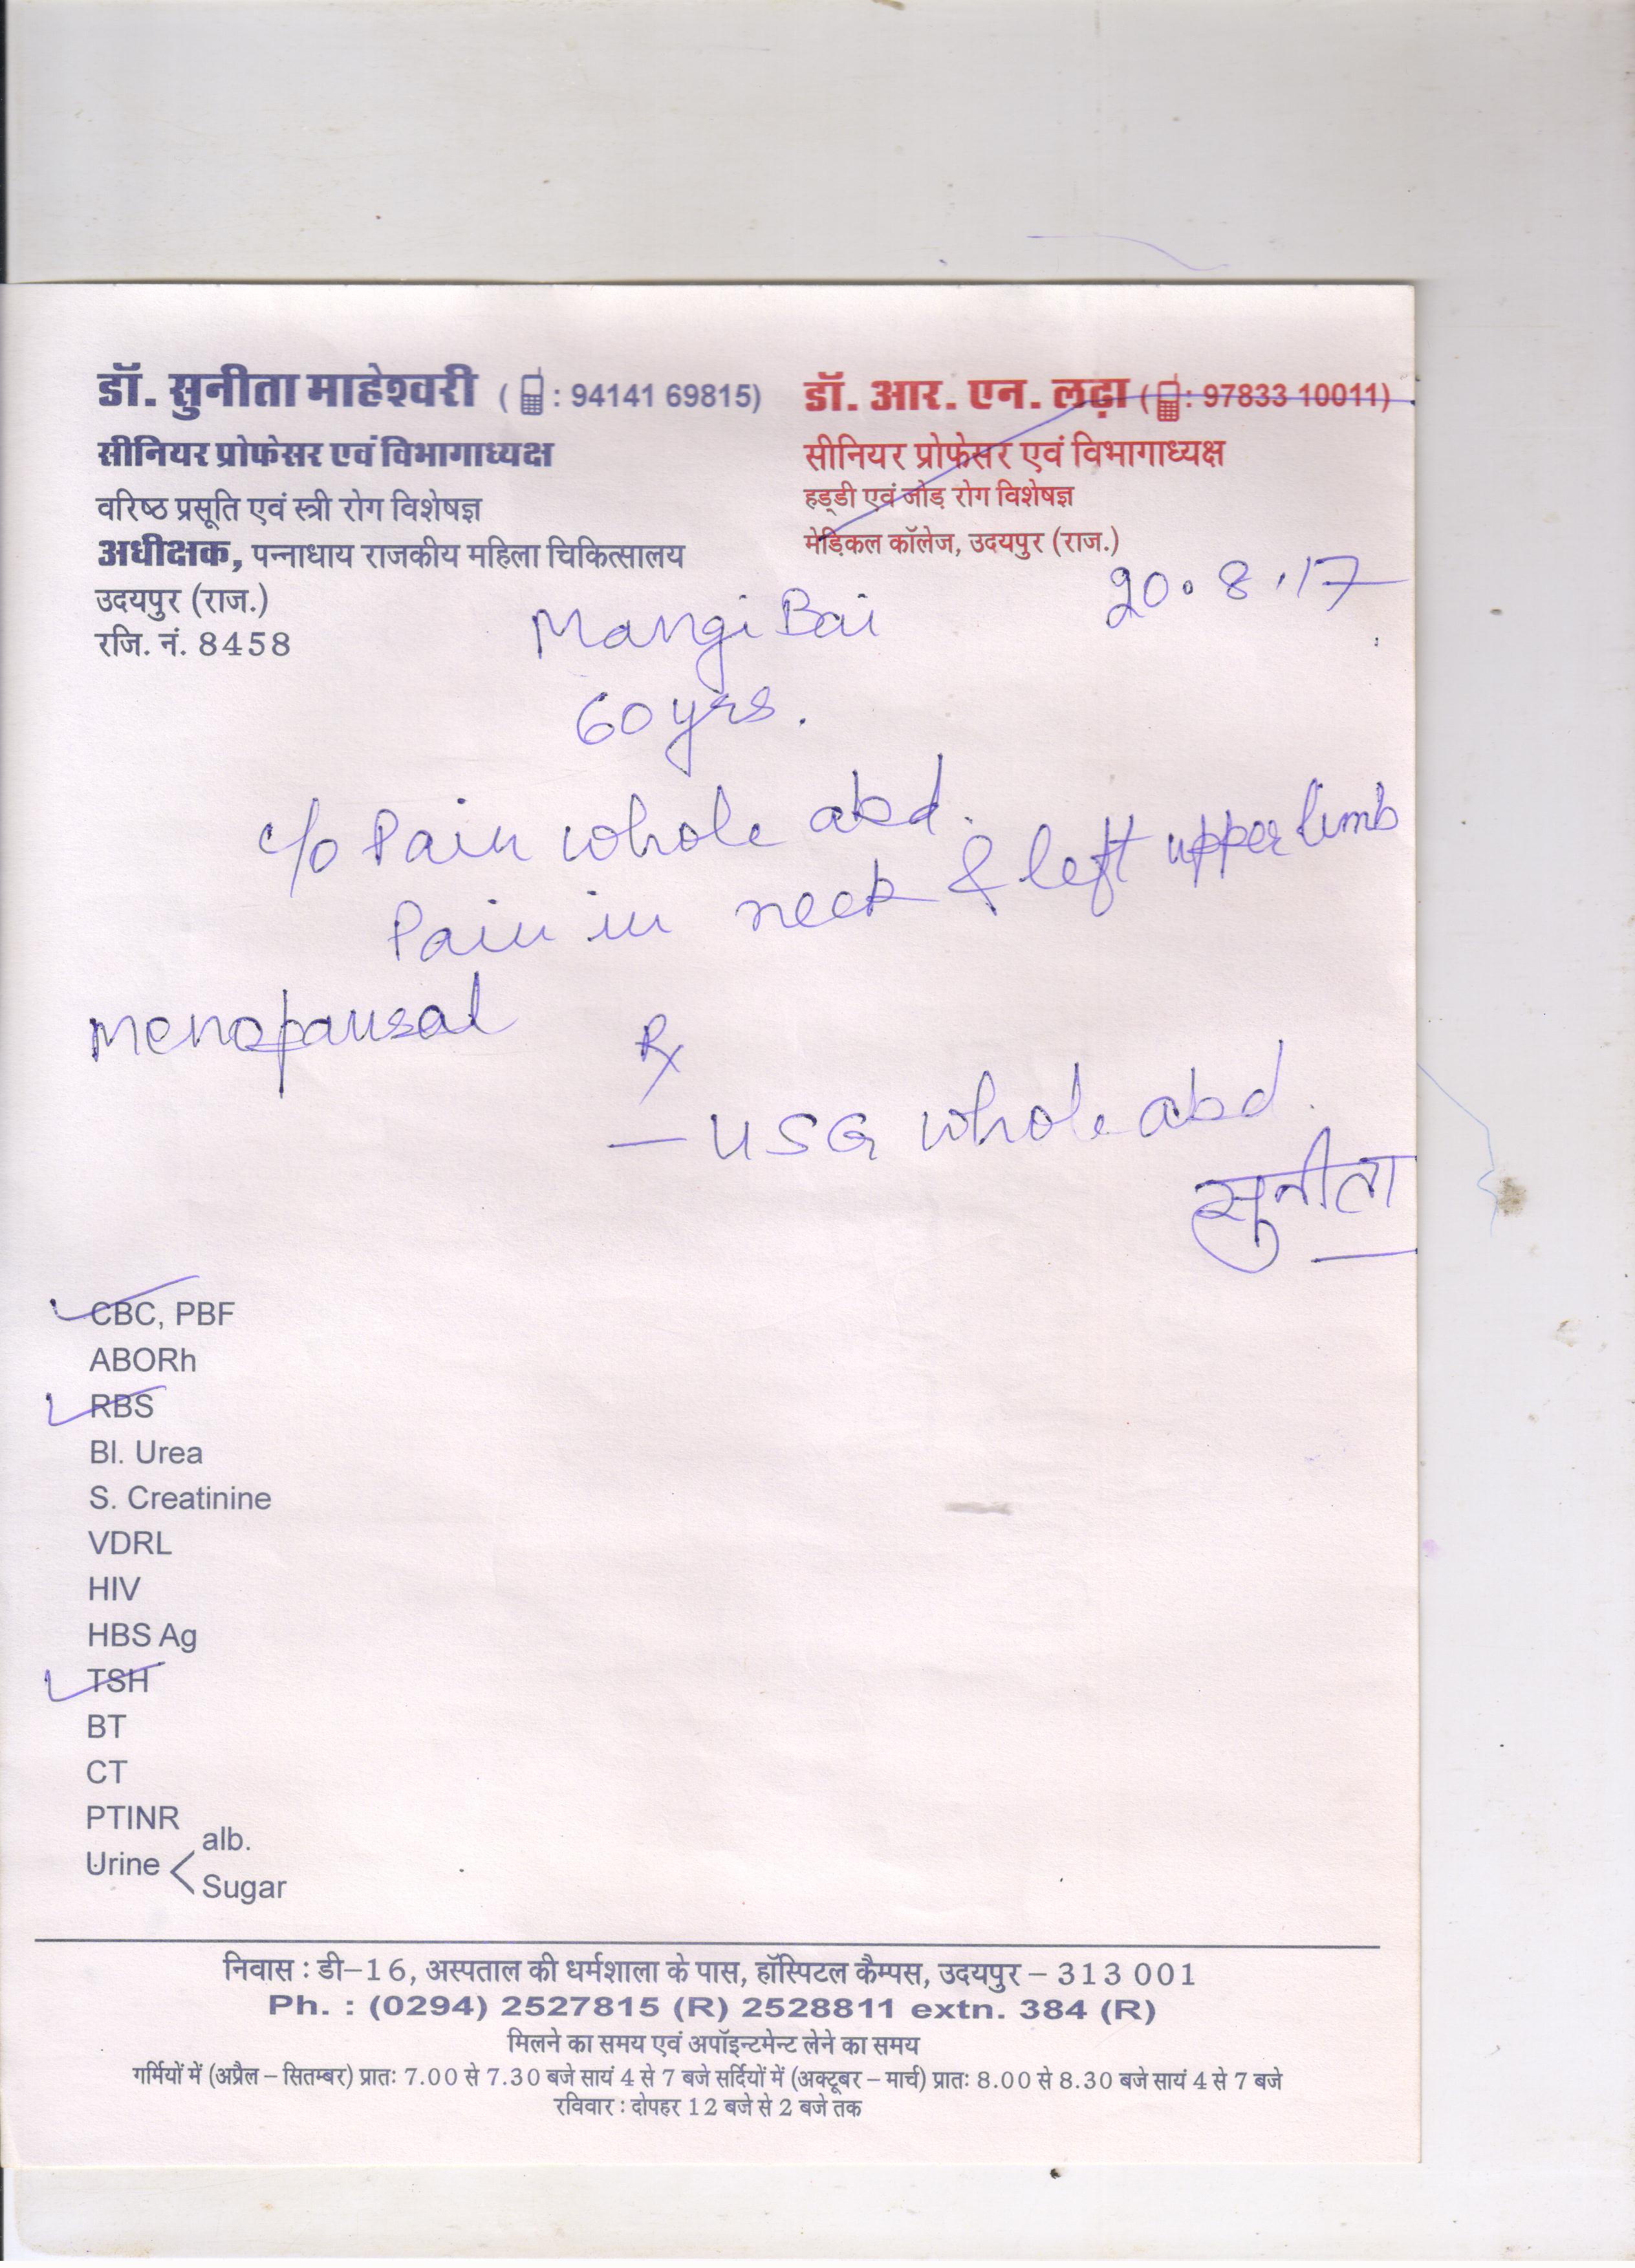 डॉ. सुनीता माहेश्वरी ( : 94141 69815)
सीनियर प्रोफेसर एवं विभागाध्यक्ष
वरिष्ठ प्रसूति एवं स्त्री रोग विशेषज्ञ
अधीक्षक, पन्नाधाय राजकीय महिला चिकित्सालय
उदयपुर (राज.)
रजि. नं. 8458
डॉ. आर. एन. लढ़ा ( : 97833 10011)
सीनियर प्रोफेसर एवं विभागाध्यक्ष
हड्डी एवं जोड़ रोग विशेषज्ञ
मेडिकल कॉलेज, उदयपुर (राज.)
20.8.17
Mangi Bai
60 yrs.
c/o Pain whole abd.
Pain in neck & left upper limb
Menopausal
Rx
- USG whole abd.
सुनीता
CBC, PBF
ABORh
RBS
Bl. Urea
S. Creatinine
VDRL
HIV
HBS Ag
TSH
BT
CT
PTINR
Urine < alb.
Sugar
निवास : डी–16, अस्पताल की धर्मशाला के पास, हॉस्पिटल कैम्पस, उदयपुर – 313 001
Ph. : (0294) 2527815 (R) 2528811 extn. 384 (R)
मिलने का समय एवं अपॉइन्टमेन्ट लेने का समय
गर्मियों में (अप्रैल – सितम्बर) प्रातः 7.00 से 7.30 बजे सायं 4 से 7 बजे सर्दियों में (अक्टूबर – मार्च) प्रातः 8.00 से 8.30 बजे सायं 4 से 7 बजे
रविवार : दोपहर 12 बजे से 2 बजे तक